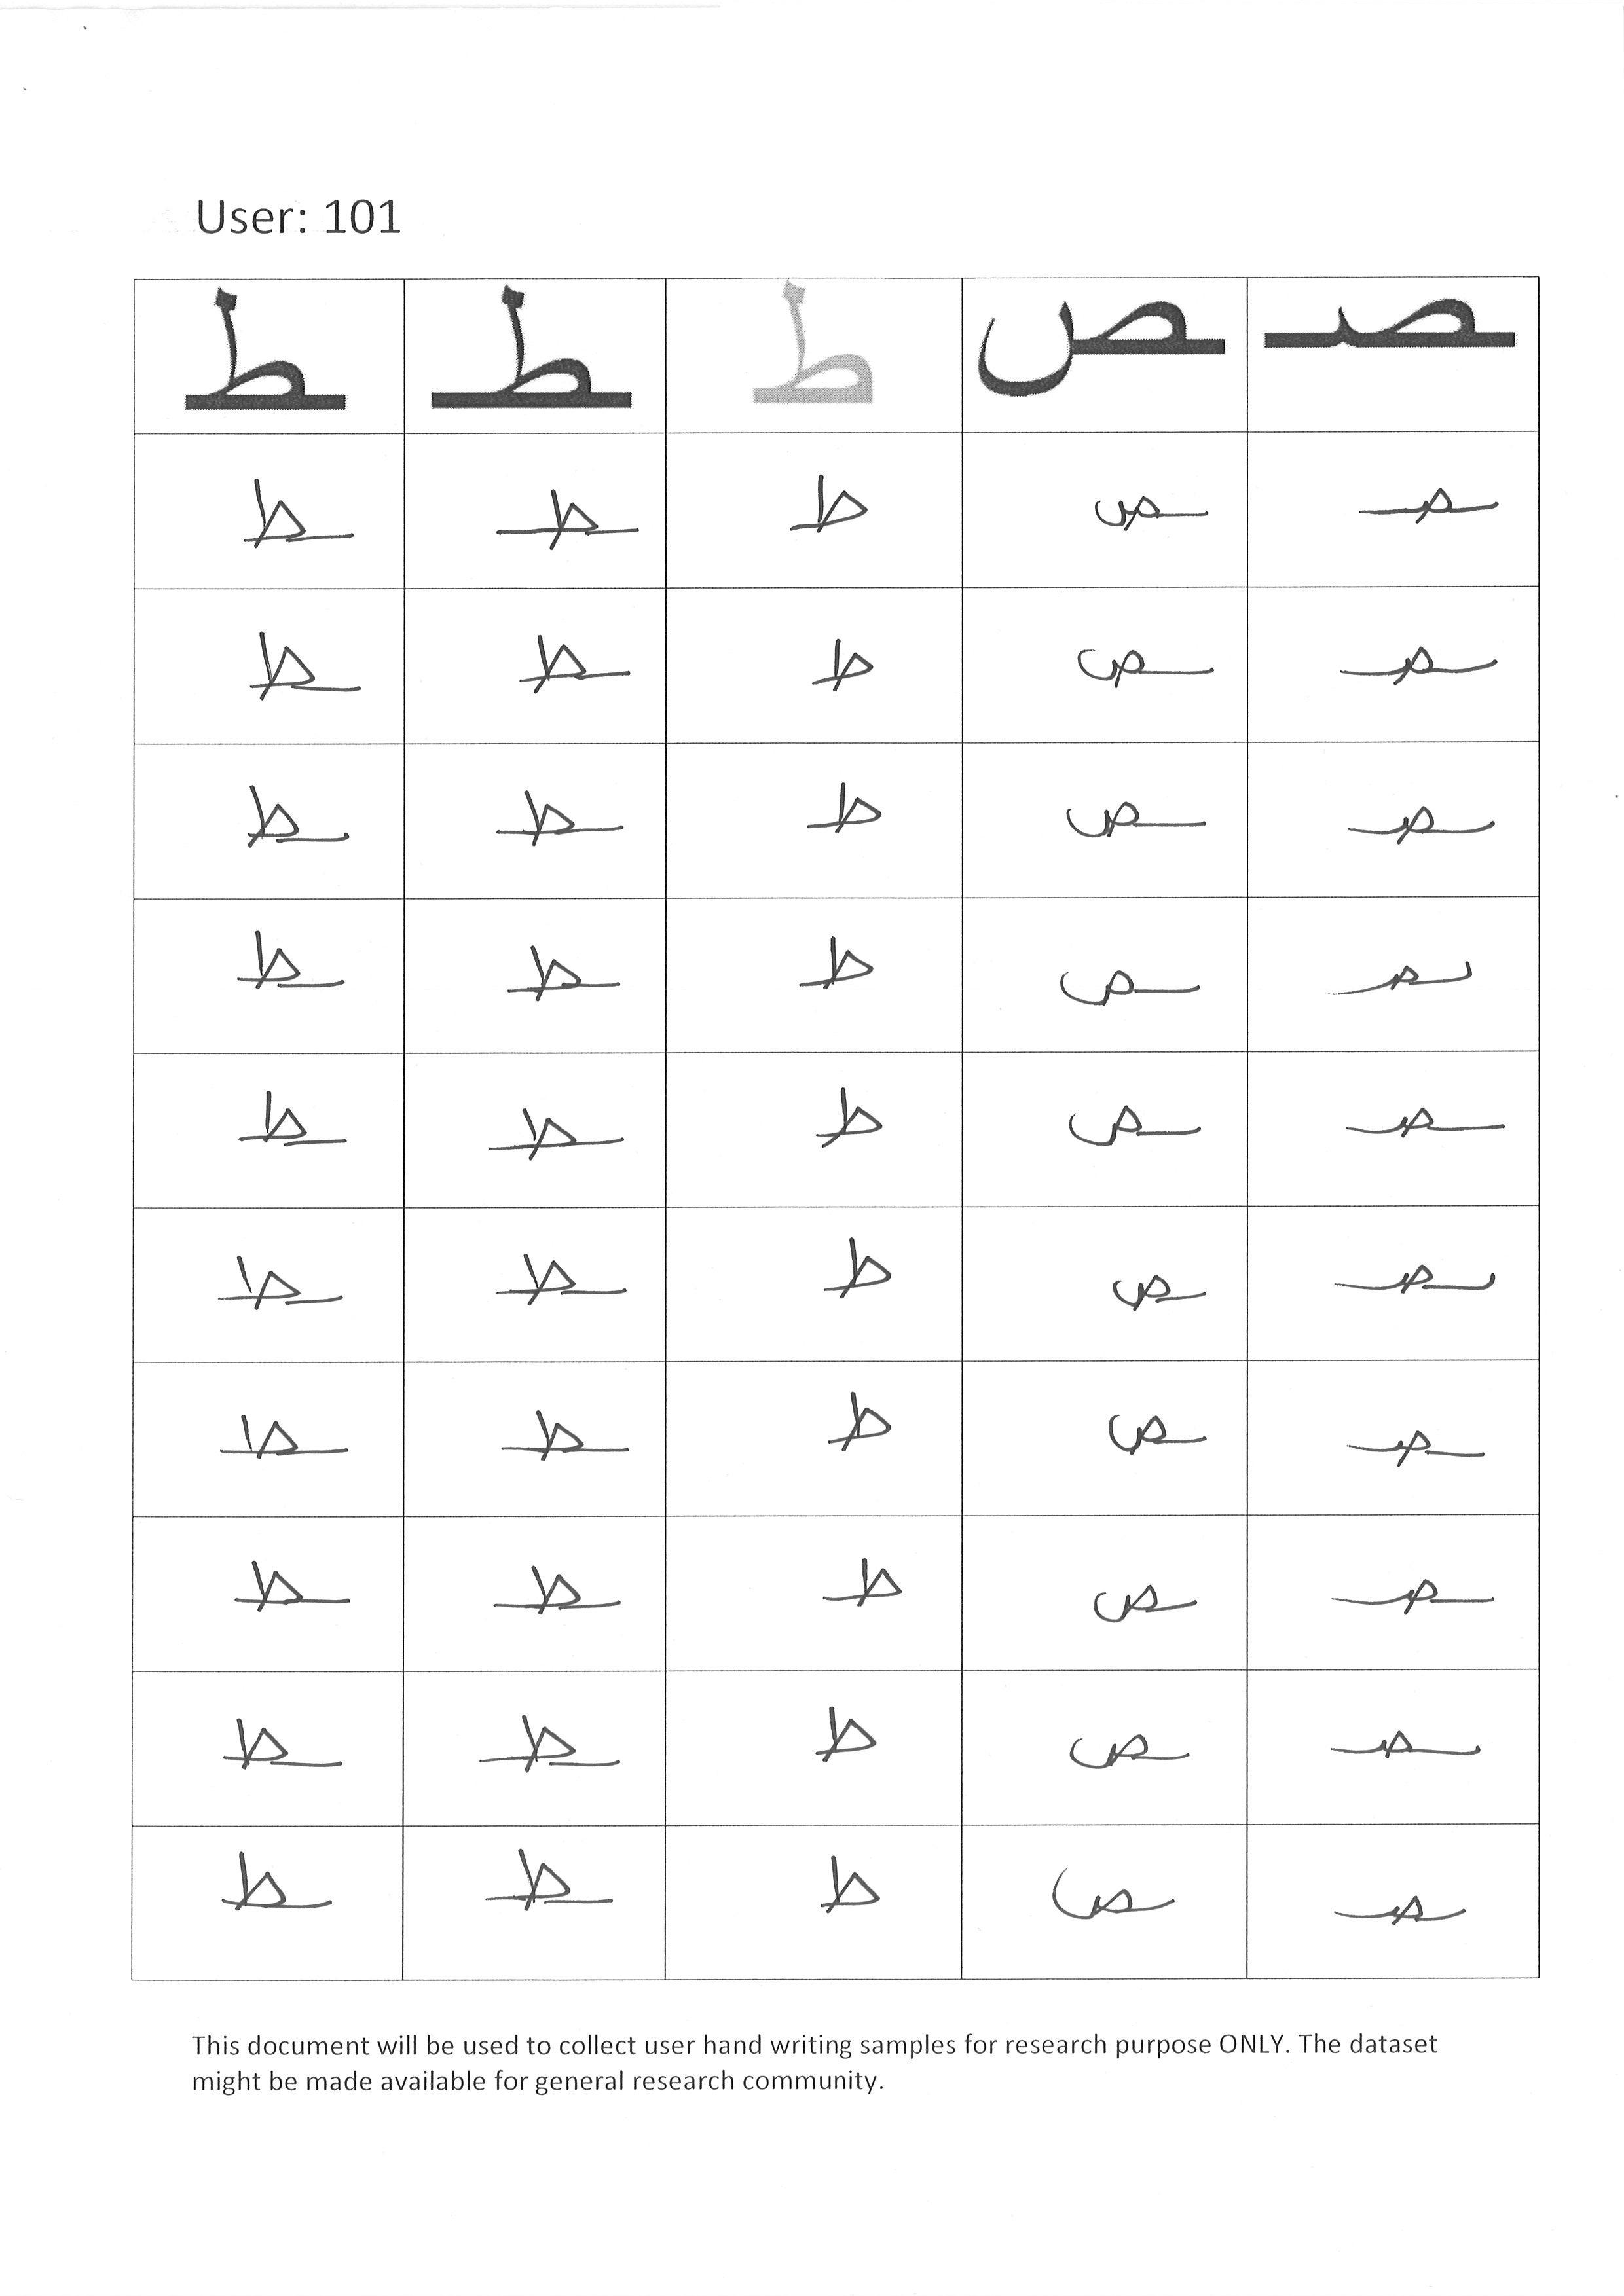 User: 101
ـصـ ـص ط ـطـ ـط
ـصـ ـص ط ـطـ ـطـ
ـصـ ـص ط ـطـ ـطـ
ـصـ ـص ط ـطـ ـطـ
ـصـ ـص ط ـطـ ـطـ
ـصـ ـص ط ـطـ ـطـ
ـصـ ـص ط ـطـ ـطـ
ـصـ ـص ط ـطـ ـطـ
ـصـ ـص ط ـطـ ـطـ
ـصـ ـص ط ـطـ ـطـ
ـصـ ـص ط ـطـ ـطـ
This document will be used to collect user hand writing samples for research purpose ONLY. The dataset
might be made available for general research community.